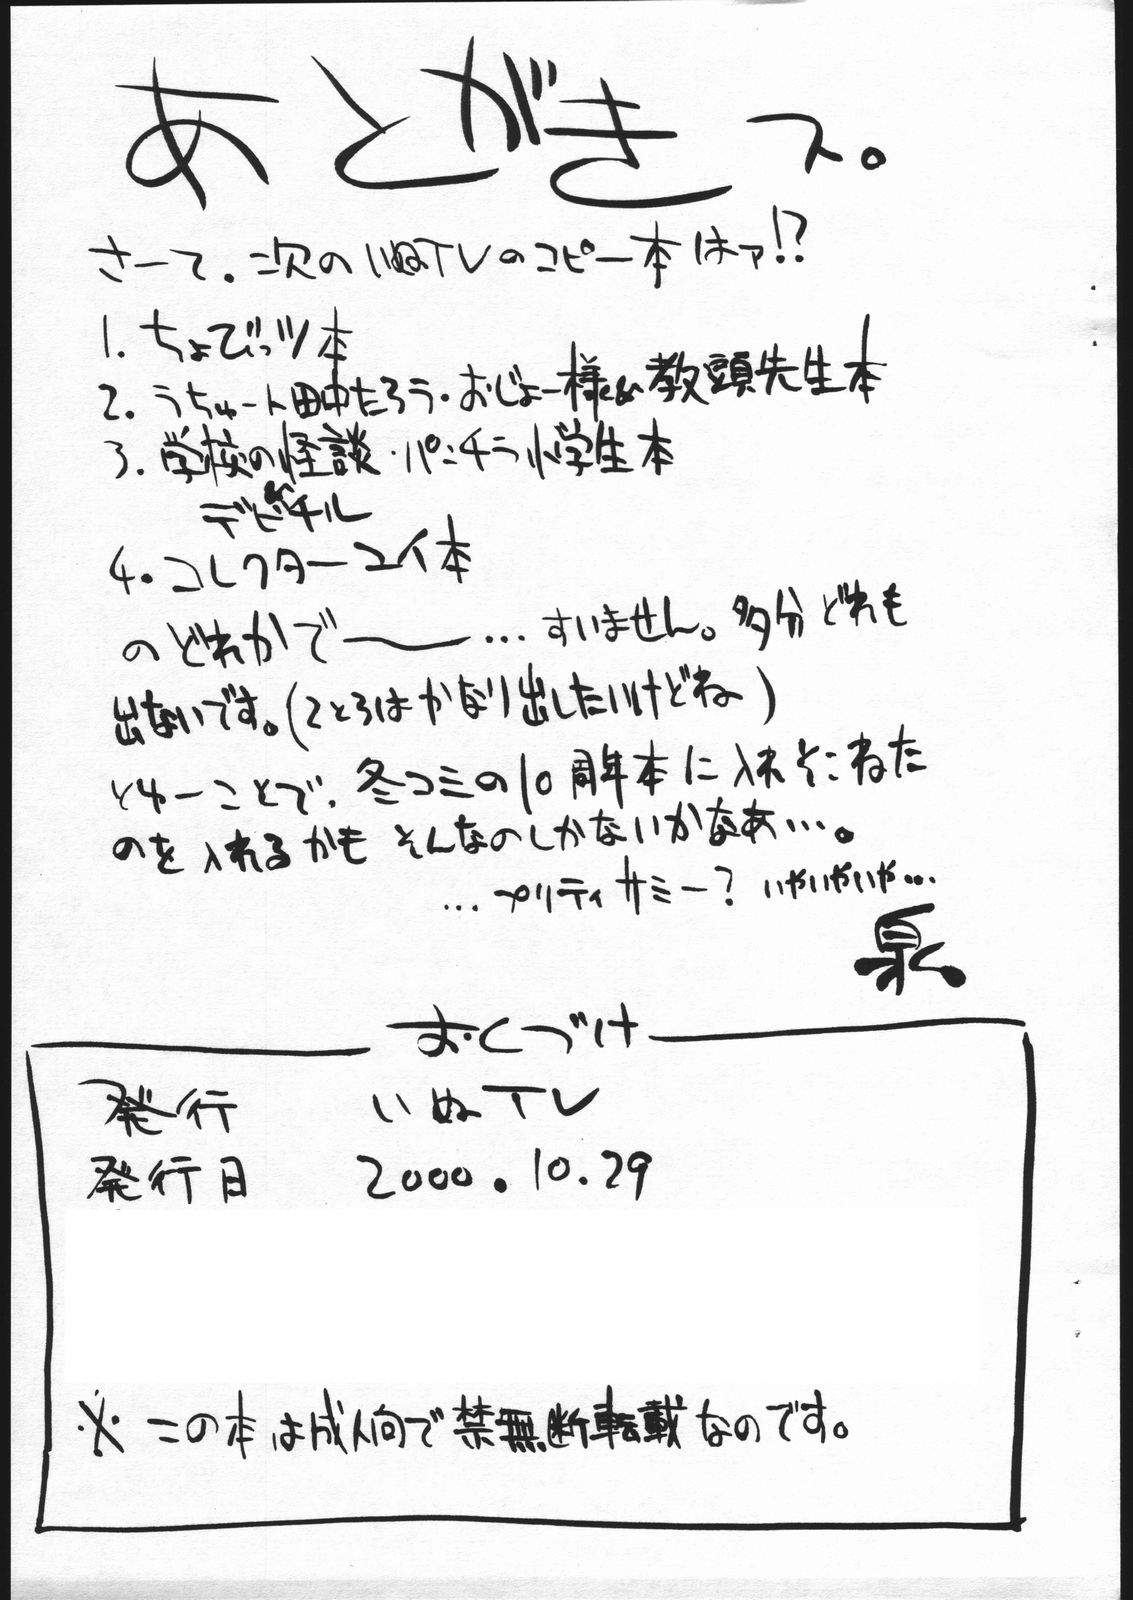 あとがきス。
さーて、次のいぬTVのコピー本はァ!?
1. ちょびっツ本
2. うちゅー人田中たろう・おじょー様&教頭先生本
3. 学校の怪談・パンチラ小学生本
デビチル
4. コレクターユイ本
のどれかで――…すいません。多分どれも
出ないです。(2と3はかなり出したいけどね)
とゆーことで、冬コミの10周年本に入れそこねた
のを入れるかも そんなのしかないかなあ…。
…プリティサミー? いやいやいや…
泉
おくづけ
発行 いぬTV
発行日 2000.10.29
※この本は成人向で禁無断転載なのです。